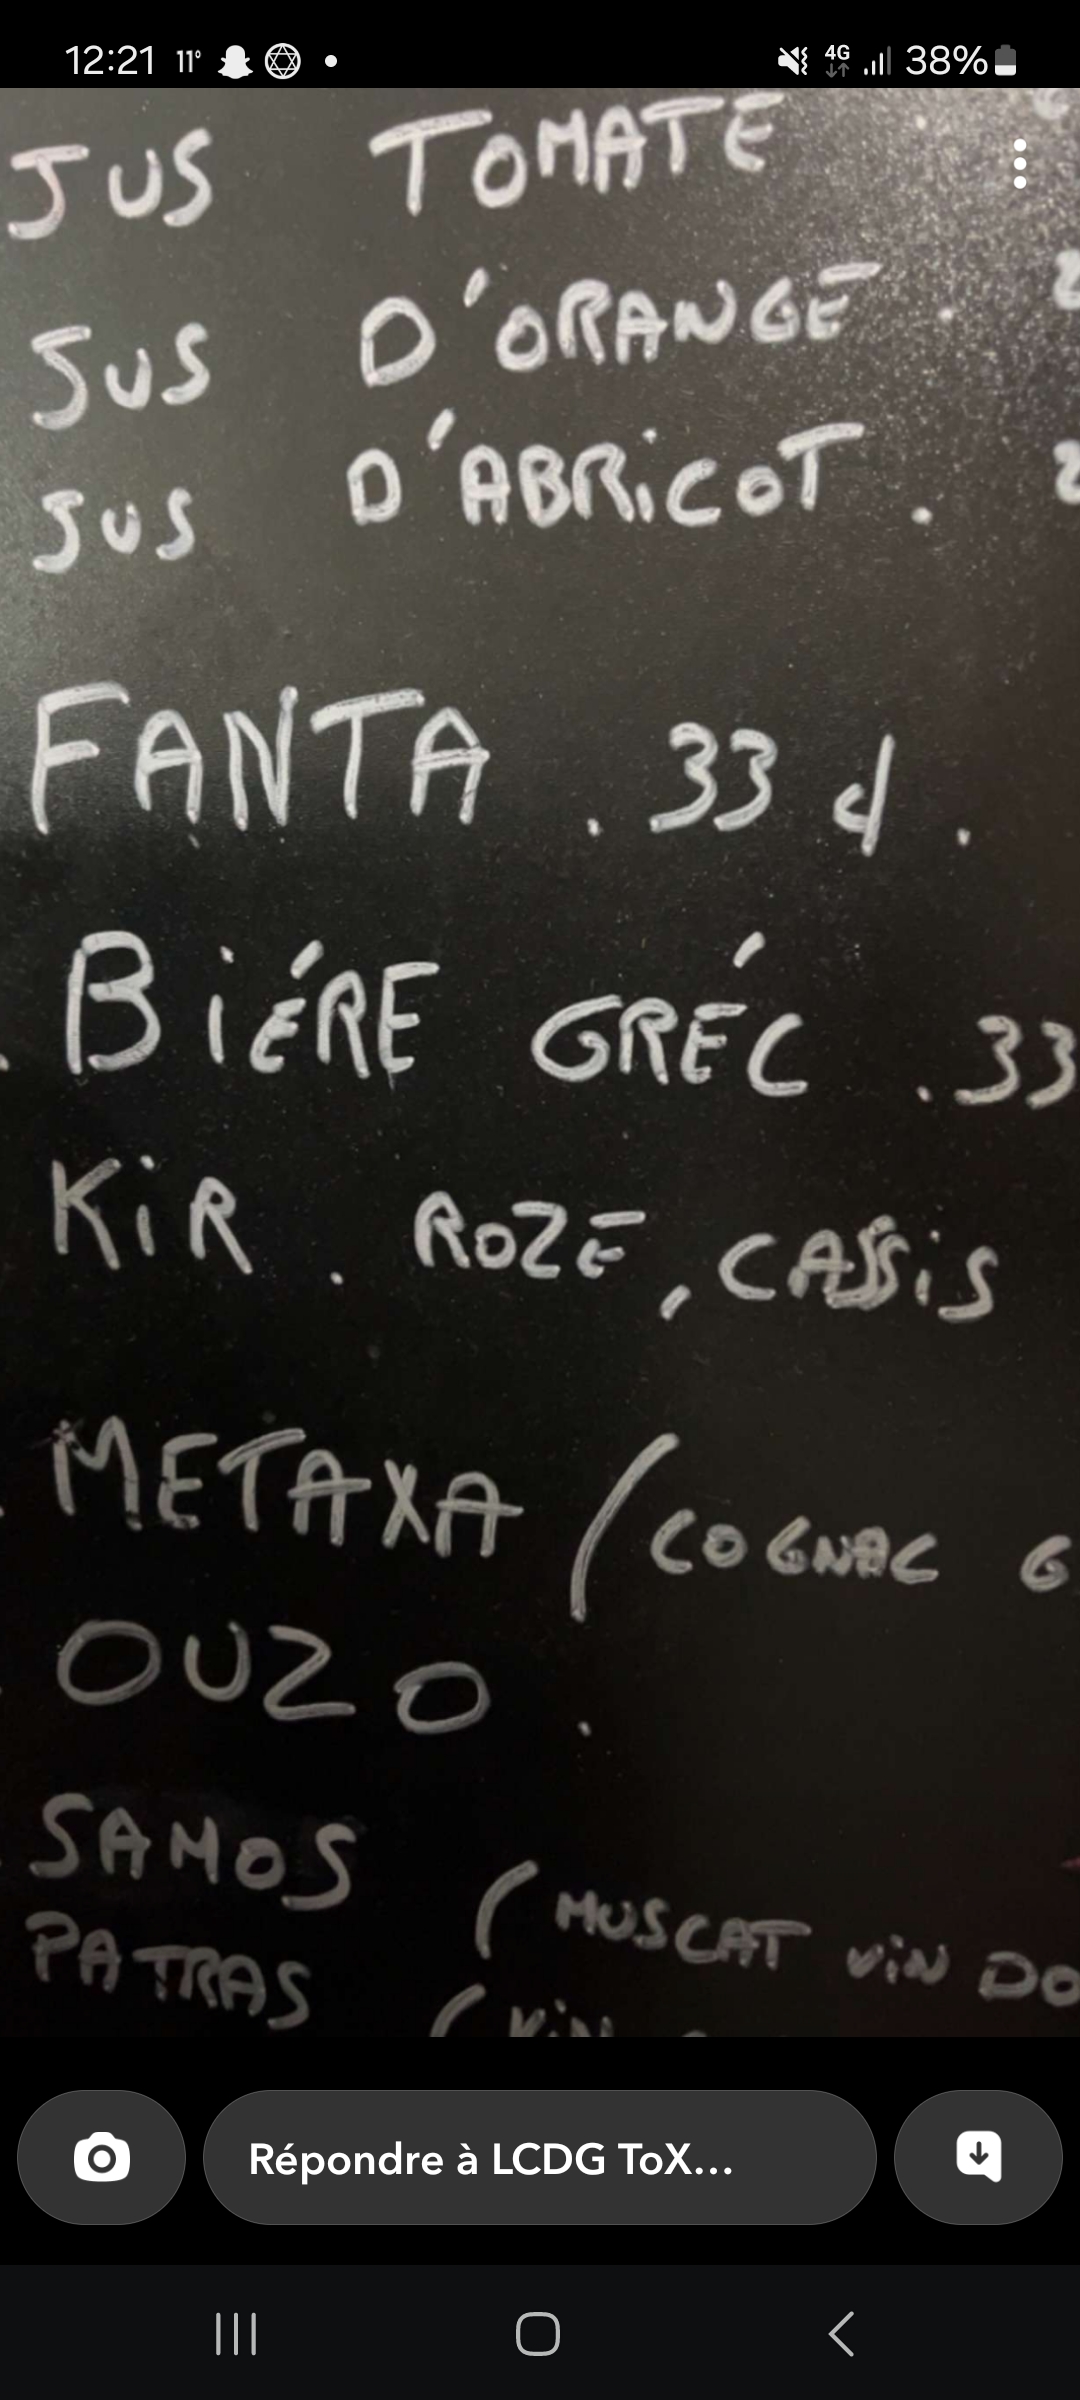 12:21 11° 4G 38%
JUS TOMATE
JUS D'ORANGE . 2
JUS D'ABRICOT . 2
FANTA . 33 cl .
. BiÉRE GRÉC . 33
KiR . ROZE, CASSiS
METAXA ( COGNAC G
OUZO .
SAMOS ( MUSCAT ViN DO
PATRAS ( ViN
Répondre à LCDG ToX...